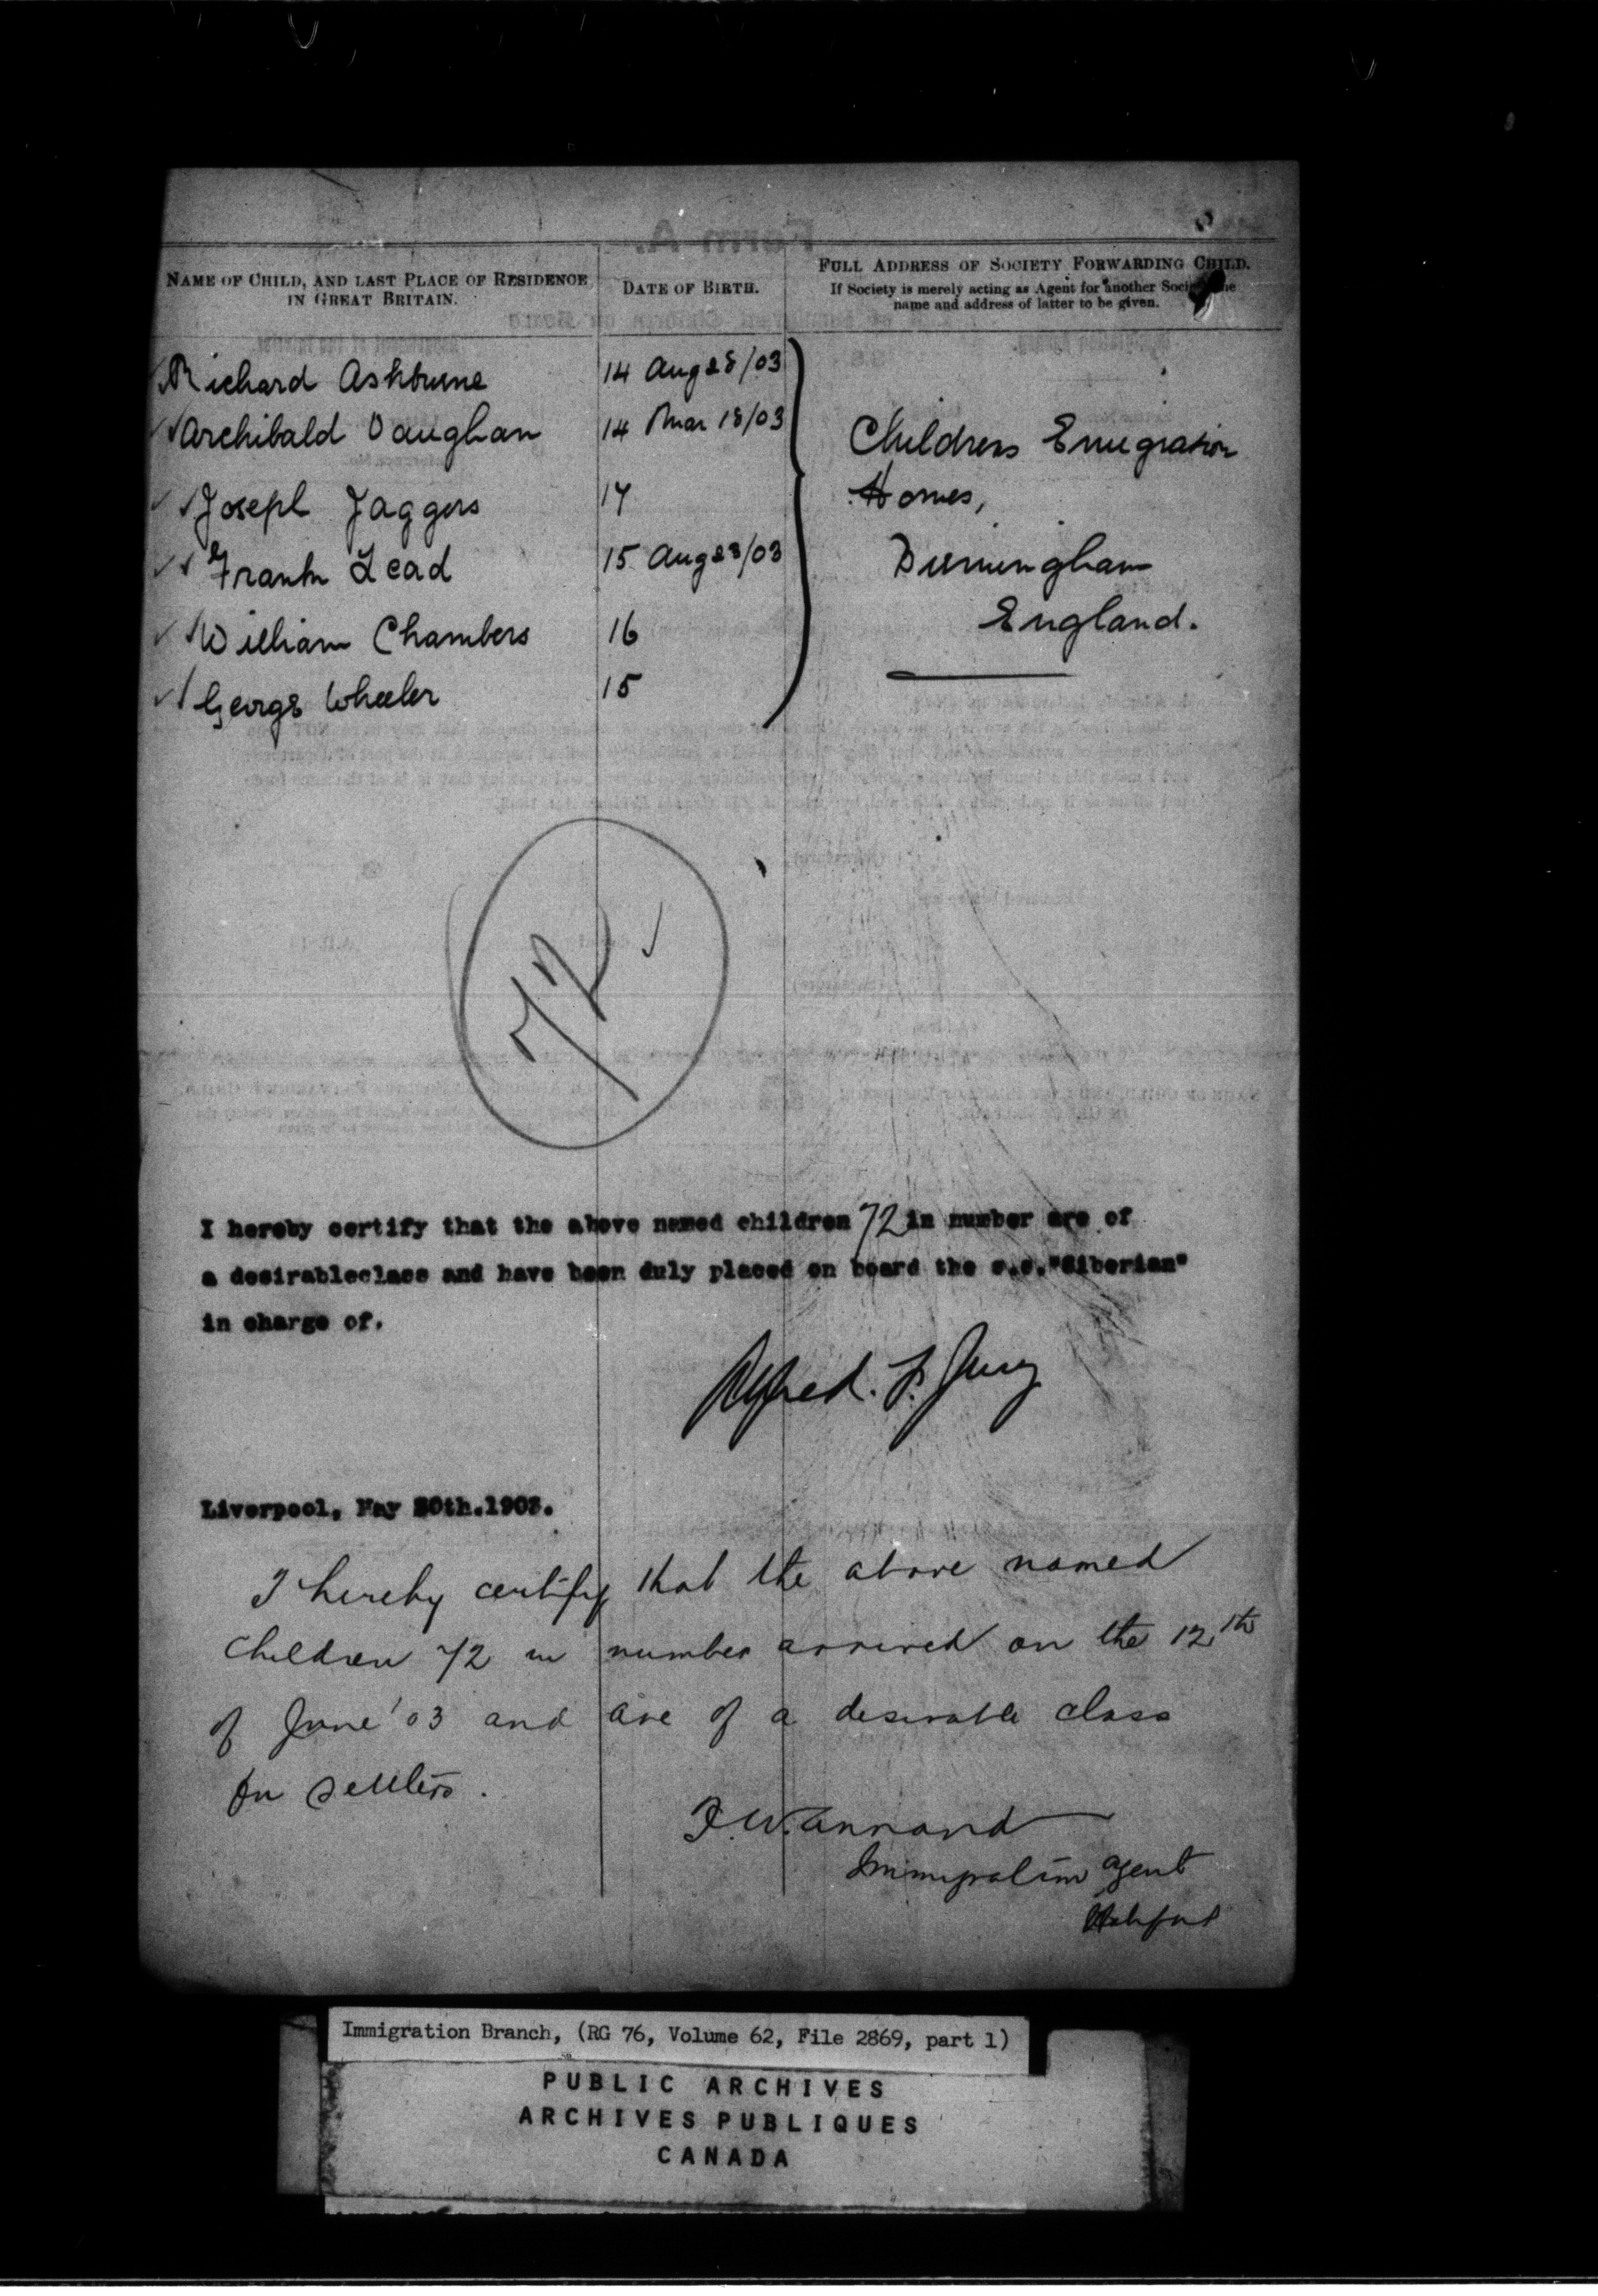 NAME OF CHILD, AND LAST PLACE OF RESIDENCE
IN GREAT BRITAIN.
DATE OF BIRTH.
FULL ADDRESS OF SOCIETY FORWARDING CHILD.
If Society is merely acting as Agent for another Society the
name and address of latter to be given.
Richard Ashburne 14 Aug 28/03
Archibald Vaughan 14 Mar 18/03
Joseph Jaggers 14
Frank Lead 15 Aug 23/03
William Chambers 16
George Wheeler 15
Childrens Emigration
Homes,
Birmingham
England.
72
I hereby certify that the above named children 72 in number are of
a desirableclass and have been duly placed on board the s.s."Siberian"
in charge of.
Alfred. F. Jury
Liverpool, May 30th.1903.
I hereby certify that the above named
children 72 in number arrived on the 12th
of June '03 and are of a desirable class
for settlers.
F. W. Annand
Immigration Agent
Halifax
Immigration Branch, (RG 76, Volume 62, File 2869, part 1)
PUBLIC ARCHIVES
ARCHIVES PUBLIQUES
CANADA